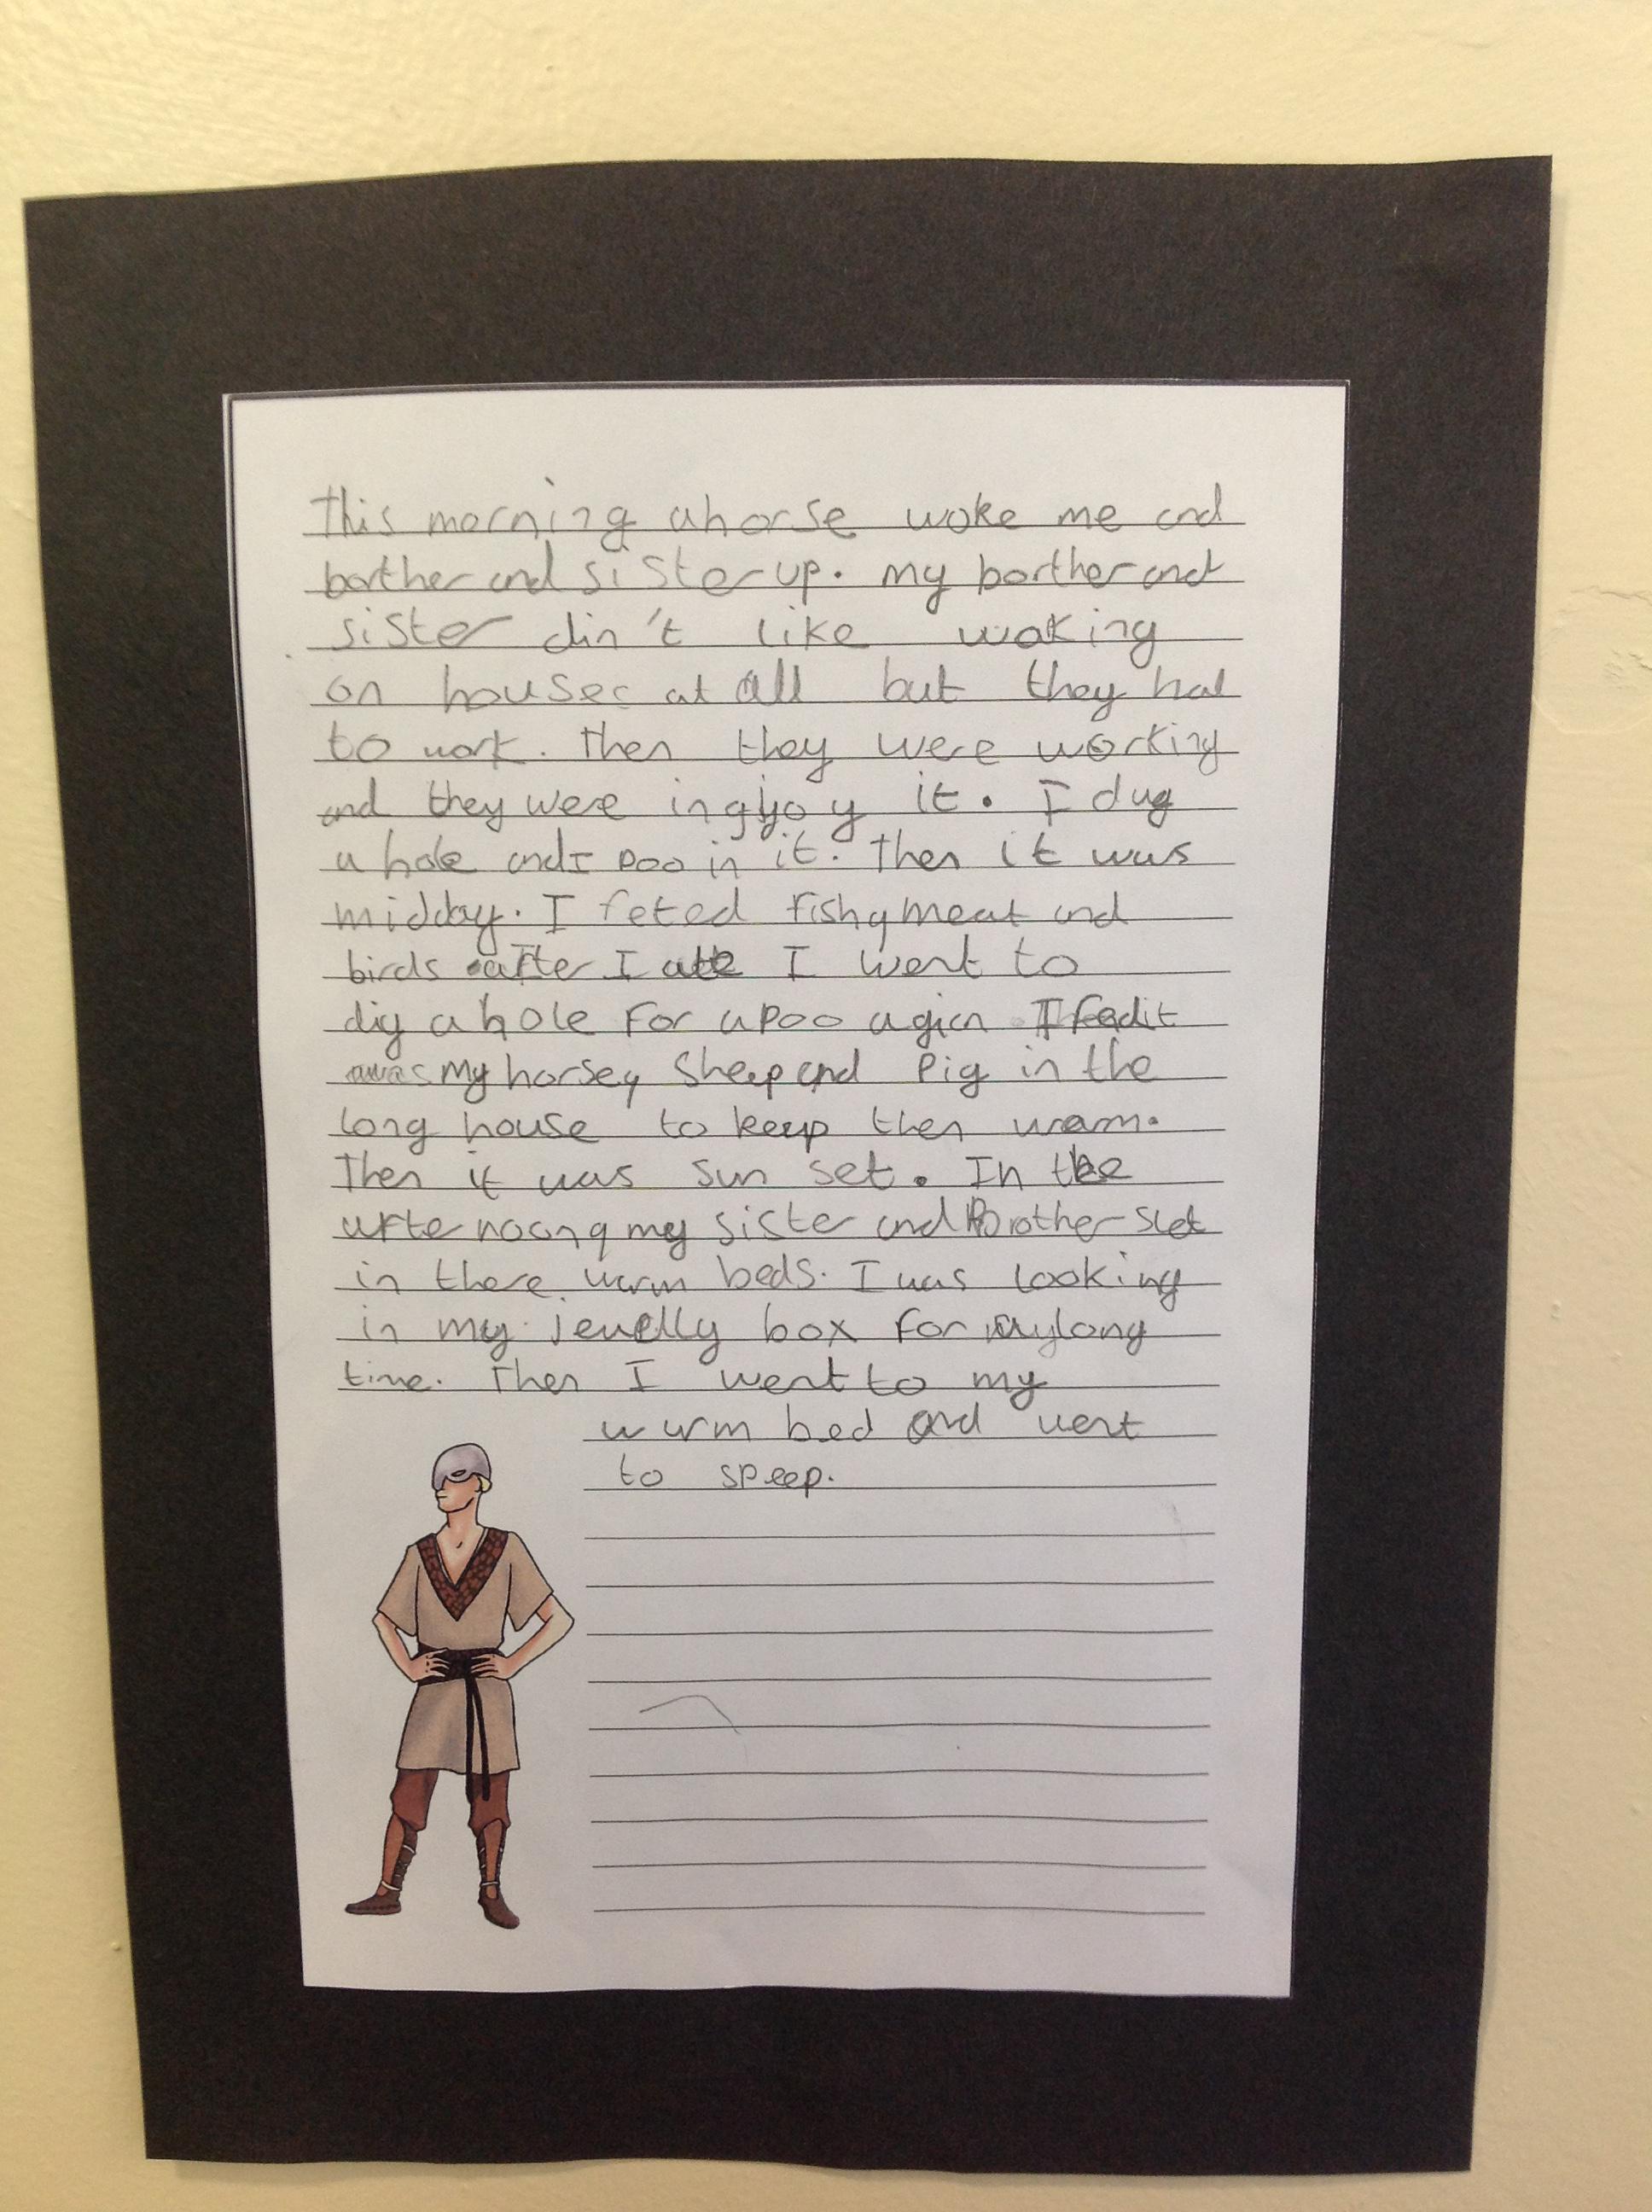 This morning a horse woke me and
borther and sister up. my borther and
sister din't like woking
on houses at all but they had
to work. Then they were working
and they were ingyoy it. I dug
a hole and I poo in it. Then it was
midday. I feted fish, meat and
birds. after I ate I went to
dig a hole for a poo agien I
my horse, sheep and pig in the
long house to keep then warm.
Then it was sun set. In the
afternoon, my sister and Brother slet
in there warm beds. I was looking
in my jewelly box for long
time. Then I went to my
warm bed and went
to speep.